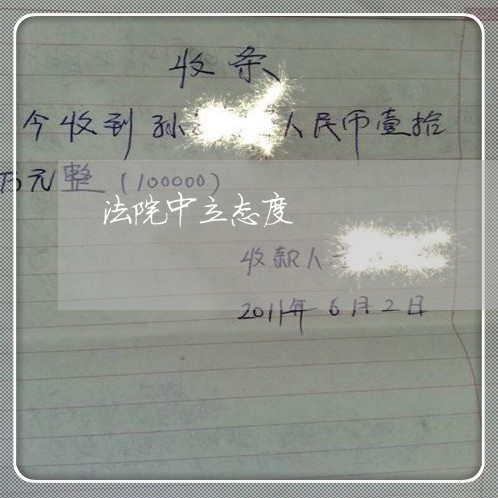 收条
今收到孙 人民币壹拾
万元整（100000）
法院中立态度
收款人
2011年6月2日